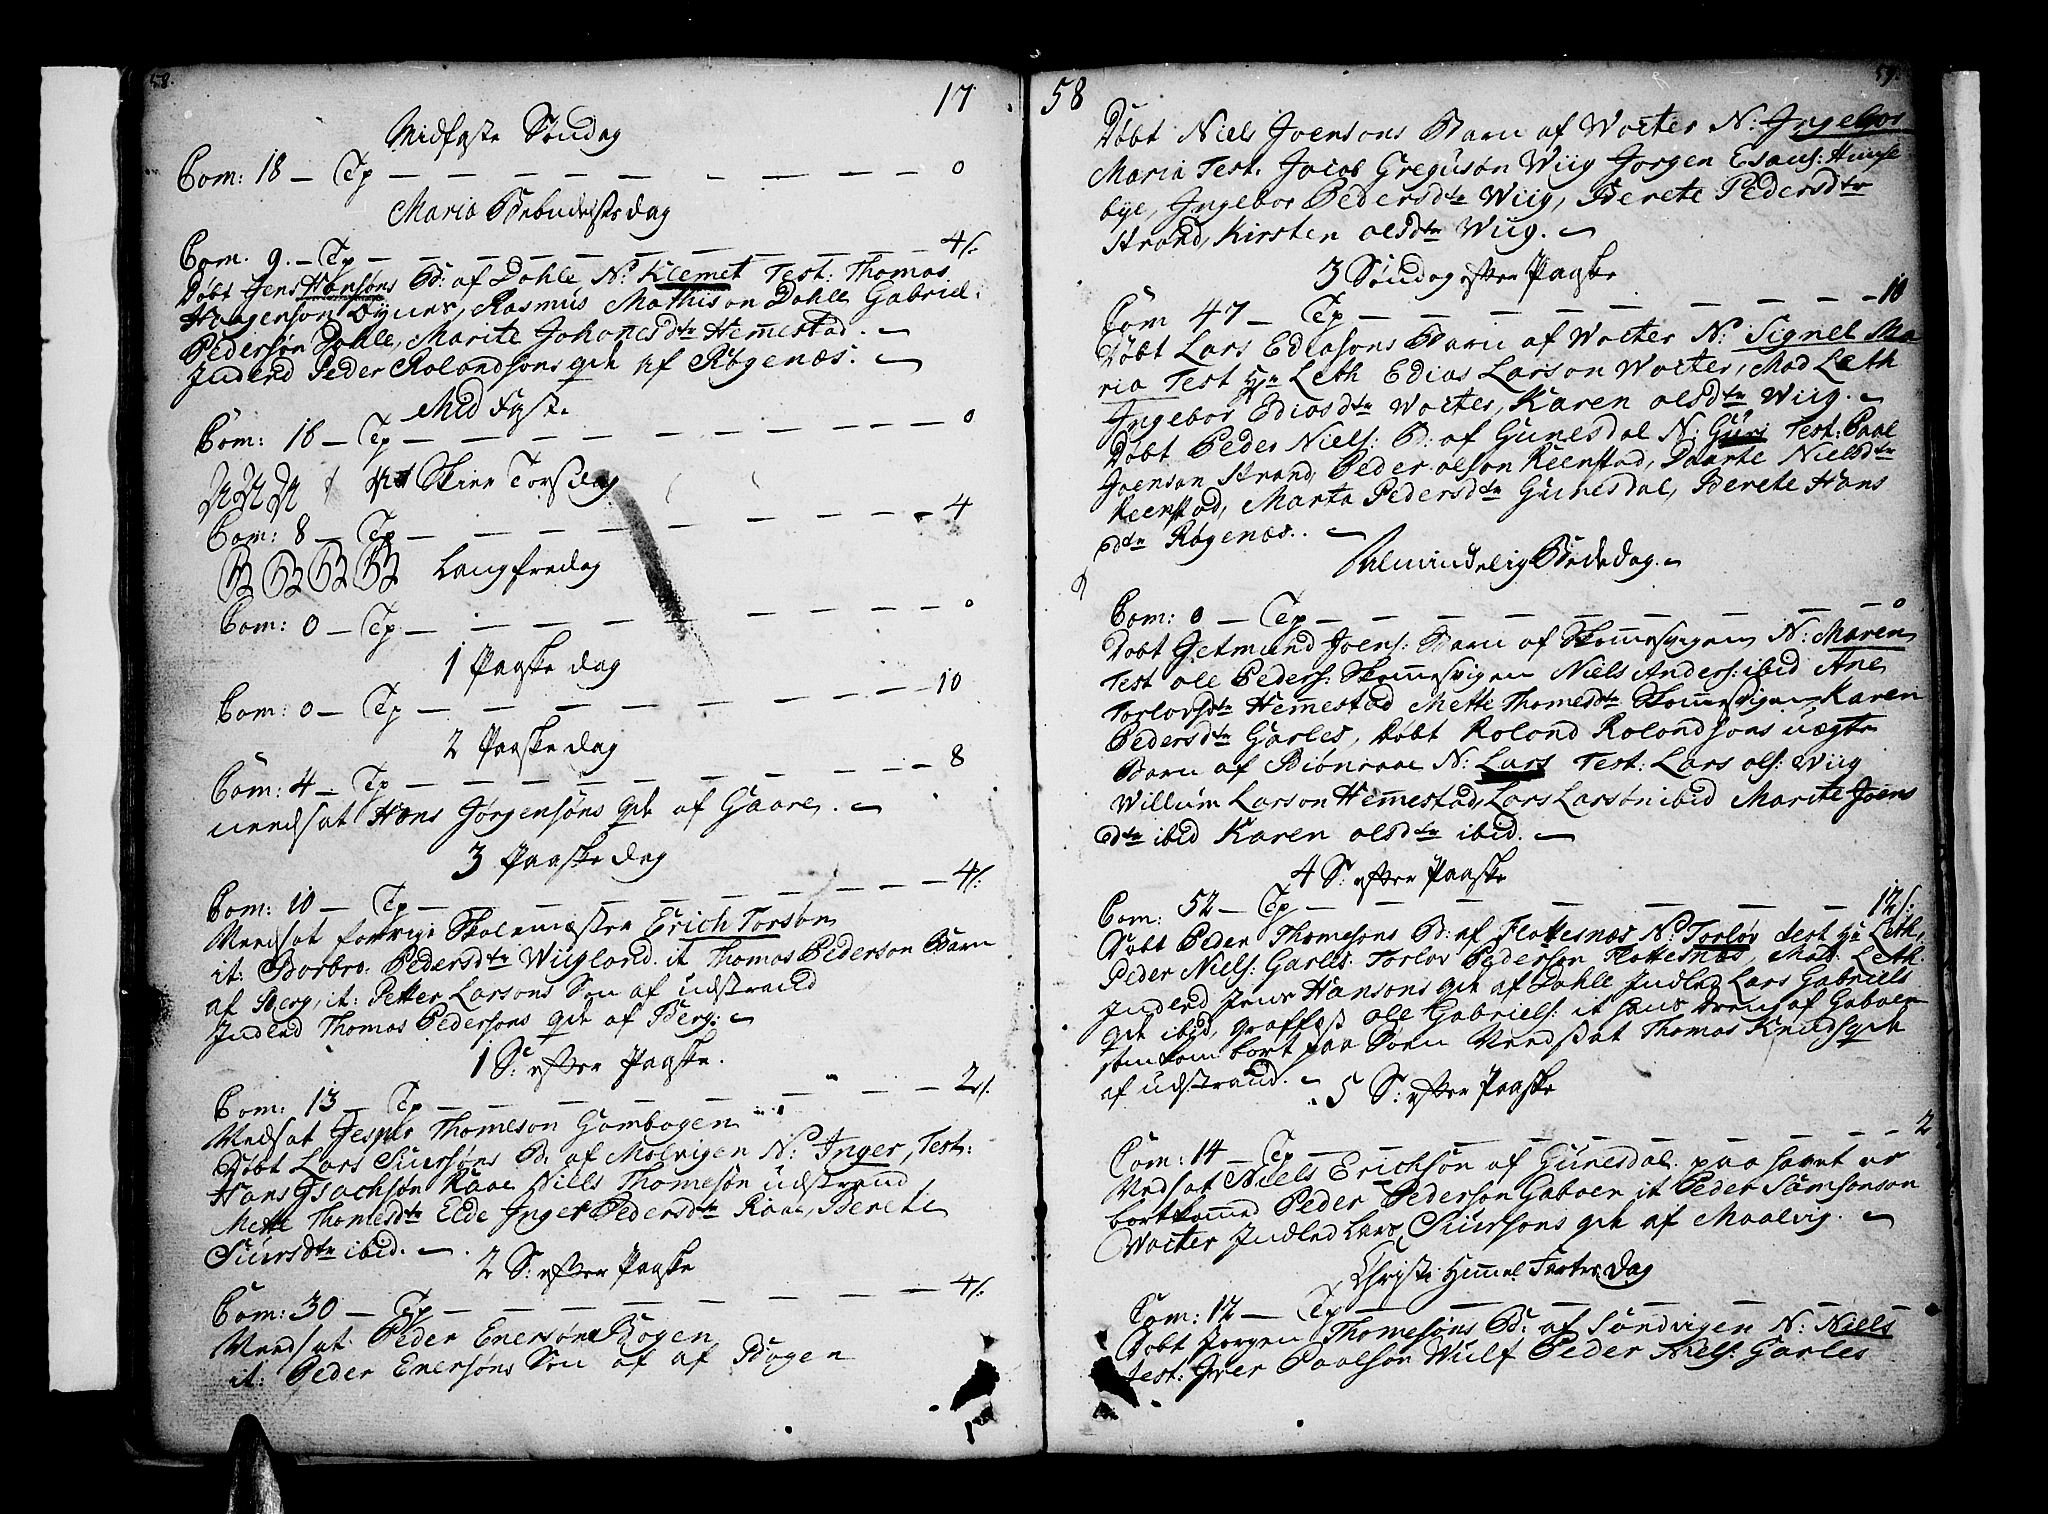 58.
17
Midfaste Söndag
Com: 18 — Tp — — — — — — — — 0
Maria Bebudelses dag
Com: 9. — Tp — — — — — — — 4/:
Döbt Jens Hansöns B: af Dahle, N: Klemet Test: Thomas
Haagenson Rasmus Mathison Dahle Gabriel
Pedersön Dahle, Marite Johanesdtr Hemestad. —
Inderd Peder Rolandsons qde af Rögenæs. —
Mid Fast.
Com: 16 — Tp — — — — — — — — 0
Skier Torsdag
Com: 8 — Tp — — — — — — — — 4
Langfredag
Com: 0 — Tp — — — — — — — — 0
1 Paaske dag
Com: 0 — Tp — — — — — — — — 10
2 Paaske dag
Com: 4 — Tp — — — — — — — — 8
uerdsat Hans Jörgensöns qde af Gaare. —
3 Paaske dag
Com: 10 — Tp — — — — — — — — 4/:
Verdsat forrige Skolemester Erich Torsön
it: Barbro Pedersdtr Wiigland. it Thomas Pederson Barn
af Berg, it: Petter Larsons Sön af udstrand
Inderd Thomas Pedersons qde af Berg: —
1 S: efter Paaske.
Com: 13 — Tp — — — — — — — — 2/:
Verdsat Jesper Thomeson Gambogen
Döbt Lars Siursöns B: af Molvigen N: Inger, Test:
Hans Isachsön Raae Niels Thomesön udstrand
Mette Thomesdtr Elde Inger Pedersdtr Raae, Berete
Siursdtr ibid. —
2 S: efter Paaske
Com: 30 — Tp — — — — — — — — 4/:
Verdsat Peder Enersön Bogen
it: Peder Enersöns Son af af Bogen
58
59.
Döbt Niels Joensons Barn af Wolter N: Ingebor
Maria Test. Jacob Gregusön Wiig Jorgen Esaus: Hunse
bye, Ingebor Pedersdtr Wiig, Berete Pedersdtr
Strand, Kirsten olsdtr Wiig. —
3 Söndag efter Paaske
Com 47 — Tp — — — — — — — — 10
Döbt Lars Ediasons Barn af Wolter N: Signel Ma
ria Test Hr Leth Edias Larson Wolter, Mad Leth
Ingebor Ediasdtr Wolter, Karen olsdtr Wiig. —
Döbt Peder Niels: B: af Gunesdal N: Guri Test: Paal
Joenson Strand, Peder olson Reenstad, Daarte Nielsdtr
Reenstad, Marta Pedersdtr Gunesdal, Berete Hans
dtr Rögenæs. —
Almindelig Bededag. —
Com: 0 — Tp — — — — — — — — 0
Döbt Getmund Joens: Barn af Skomesvigen N: Maren
Test ole Peders: Skomesvigen Niels Anders: ibid Ane
Torlovsdtr Hemestad Mette Thomesdtr Skomesvigen Karen
Pedersdtr Garles, Döbt Roland Rolandsons uægte
Barn af Biönraae N: Lars Test: Lars ols: Wiig
Willum Larson Hemestad, Lars Larsön ibid Marite Joens
dtr ibid Karen olsdtr ibid. —
4 S: efter Paaske
Com: 52 — Tp — — — — — — — — 12/:
Döbt Peder Thomesons B: af Flottesnæs N: Torlöv Test Hr Leth,
Peder Niels: Garles. Torlov Pederson Flottesnæs, Mad. Leth.
Inderd Jens Hansons qde af Dahle Indled Lars Gabriels
qde ibid, graffæst ole Gabriels: it hans Dreng af Gaboen
som kom bort paa Söen Verdsat Thomas Knuds: qde
af udstrand. —
5 S: efter Paaske
Com: 14 — Tp — — — — — — — — 2
Verdsat Niels Erichsön af Gunesdal. paa havet er
bortkommed Peder Pederson Gaboen it Peder Samsonson
Wolter Indled Lars Siursons qde af Maalvig. —
Christi Himmel Farts Dag
Com: 12 — Tp — — — — — — — —
Döbt Jorgen Thomesöns B: af Sandvigen N: Niels
Test: Iver Paalson Wulf Peder Niels: Garles